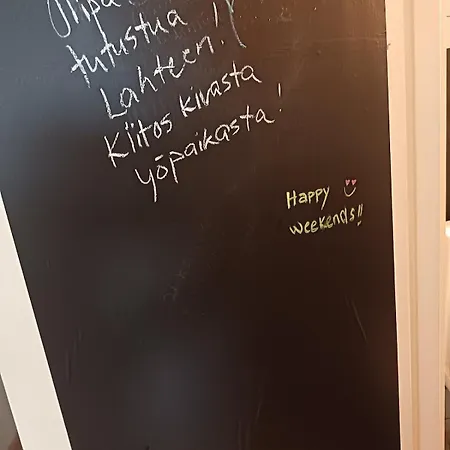 Olipa
tutustua
Lahteen!
Kiitos kivasta
yöpaikasta!
Happy
weekends!!